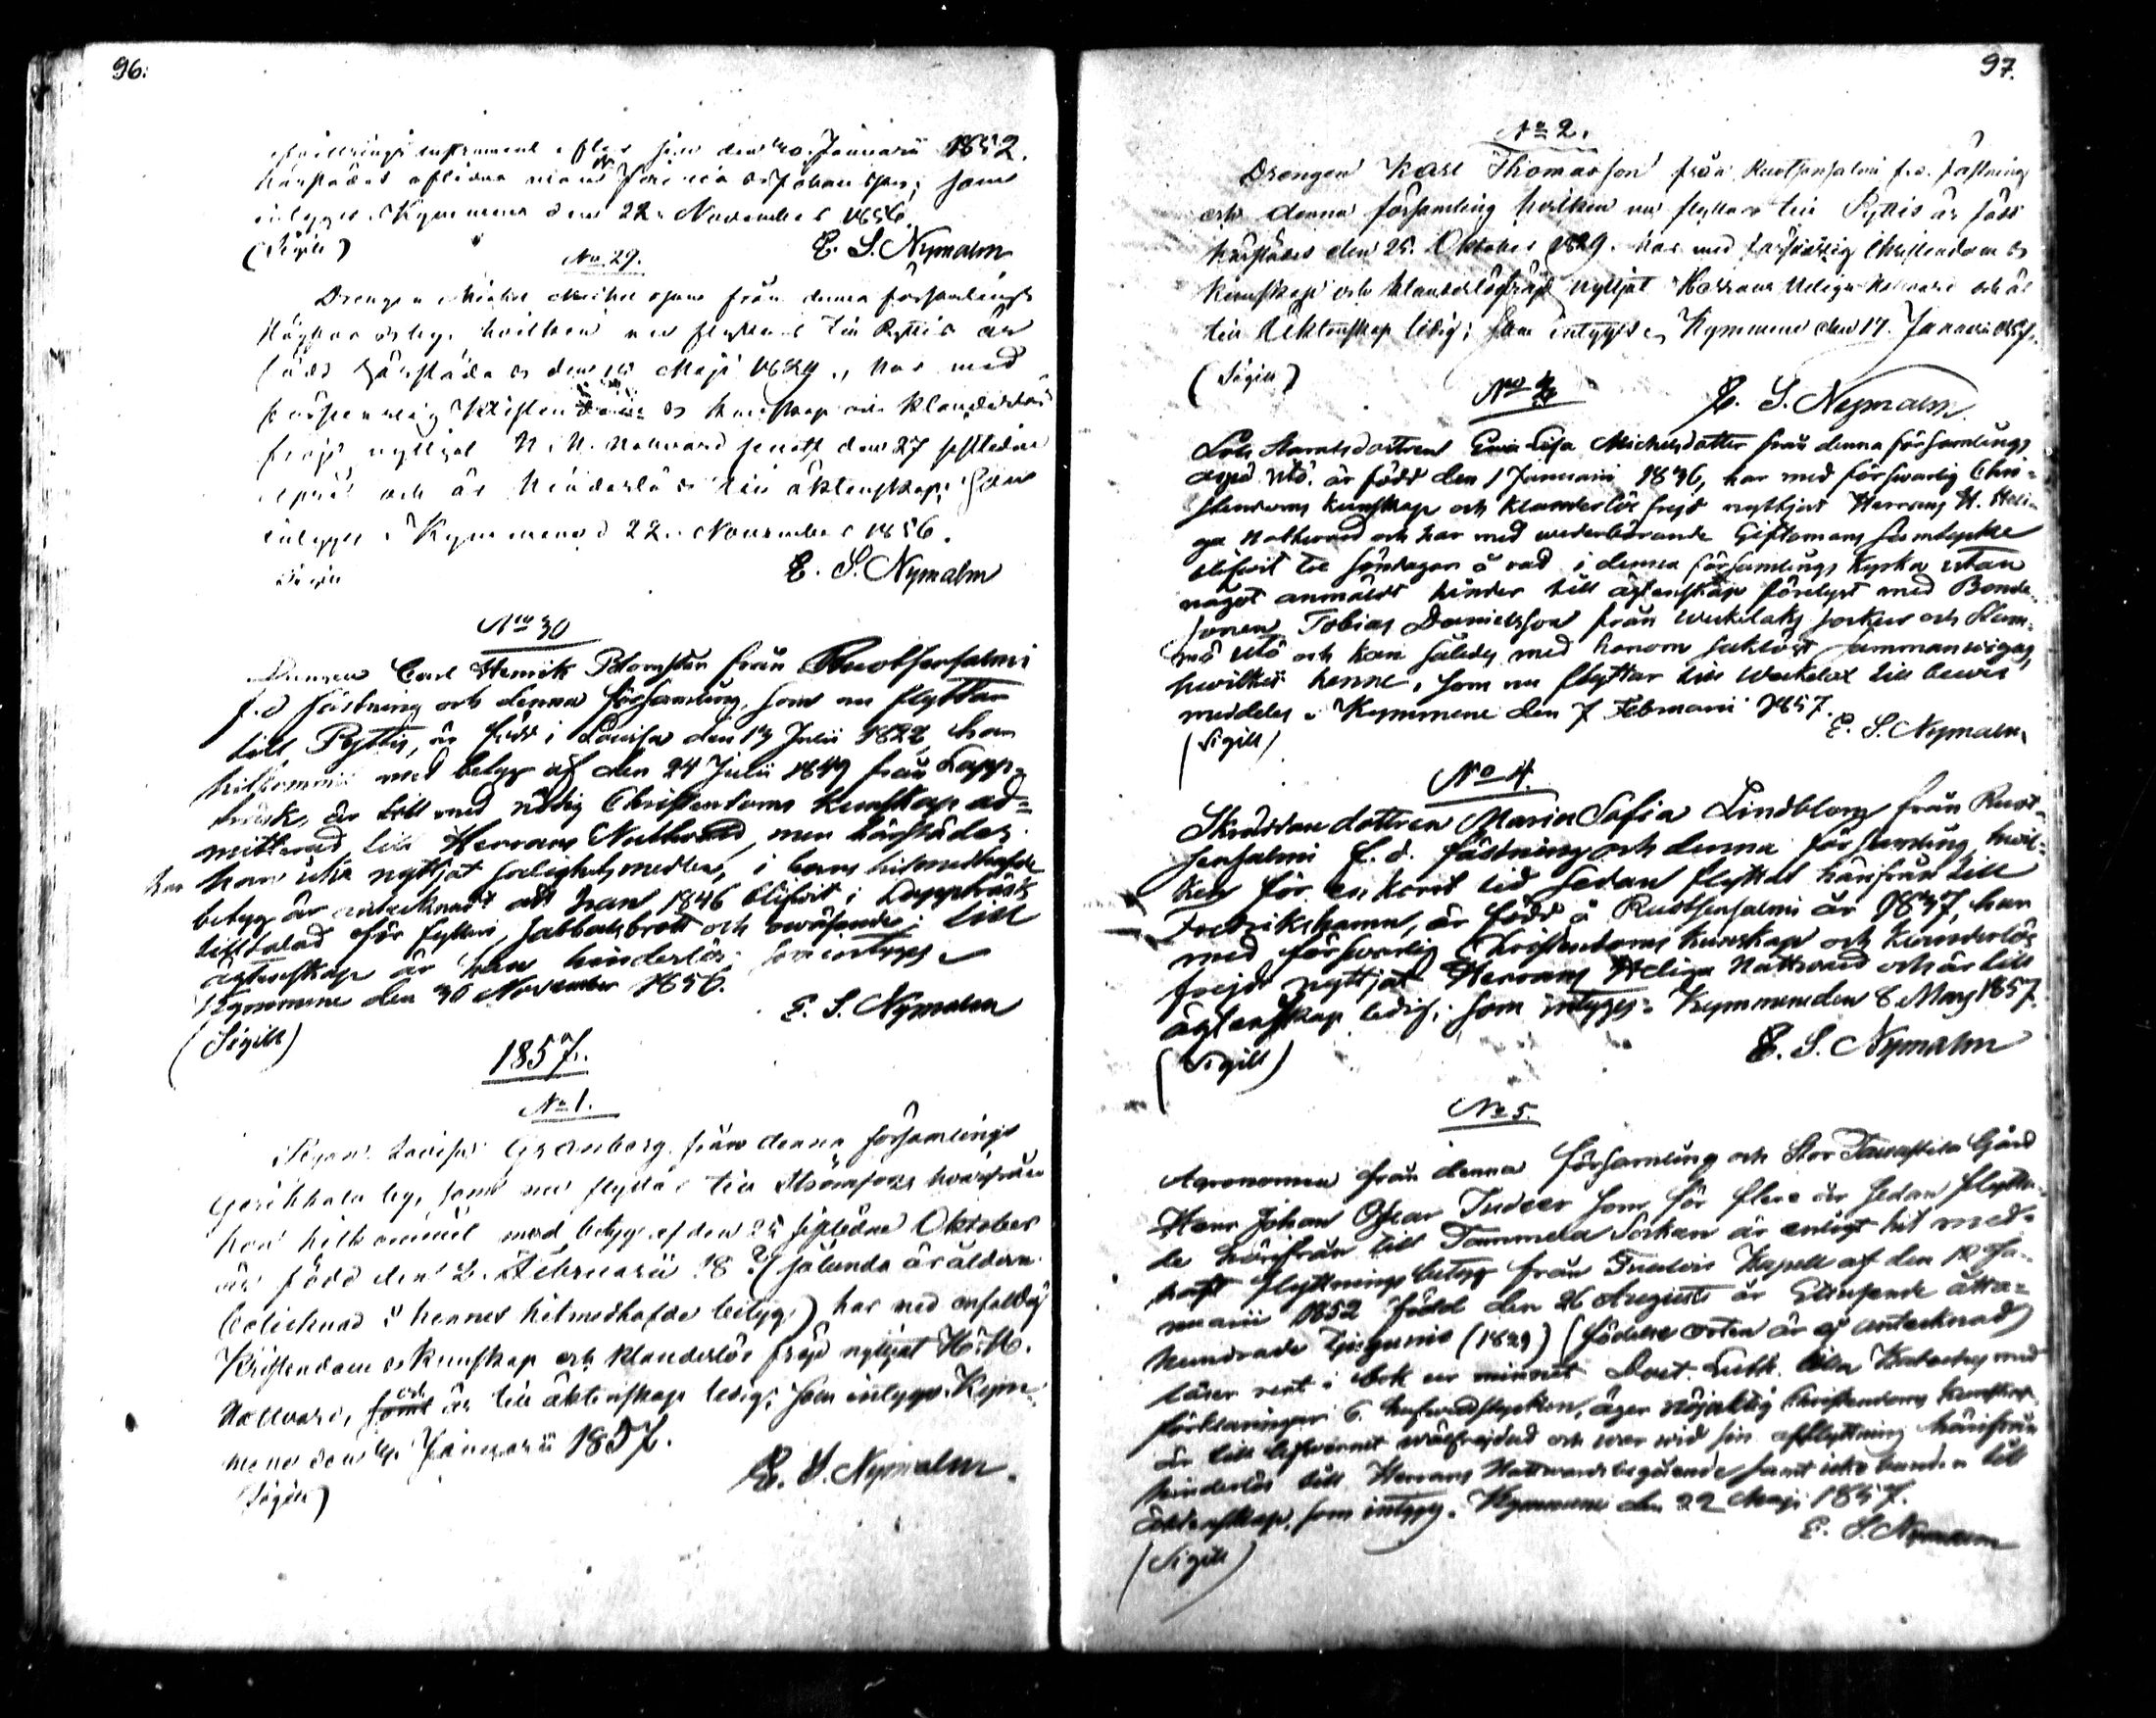 96.
efter sin den 30 Januarii 1852.
härstädes aflidna man Johansson; som
intygges. Kymmene den 22. November 1856.
(Sigill)
E. S. Nymalm
No. 29.
Drengen Michel Michelsson från denna församlings
by, hvilken nu flyttar till Pyttis är
född härstädes den Maji 1829, har med
försvarlig Kristendoms kunskap och klanderlös
frejd nyttjat H. H. Nattvard senast den 27 sistledne
April och är hinderlös till äktenskap; som
intyges. Kymmene d 22. November 1856.
Sigill
E. S. Nymalm
No 30
Drengen Carl Henrik Blomster från Ruotsensalmi
f.d fästning och denna församling, som nu flyttar
till Pyttis, är född i Lovisa den 14 Julii 1822, han
hitkommit med betyg af den 24 Julii 1849 från Lapp-
träsk, är till med nödig Christendoms kunskap ad-
mitterad till Herrans Nattvard, men härstädes
har han icke nyttjat salighetsmedlen, i hans hitmedhafde
betyg är antecknadt att han 1846 blifvit i Lappträsk
tilltalad för fylleri, sabbatsbrott och oväsende; till
ägtenskap är han hinderlös; som intyges.
Kymmene den 30 November 1856.
E. S. Nymalm
(Sigill)
1857.
No 1.
Pigan Lovisa Granberg från denna församlings
by, som nu flyttar till Strömfors hvarifrån
hon hitkommit med betyg af den 25 sistledne Oktober
är född den 2. Februarii 18 ? (sålunda är åldern
betecknad i hennes hitmedhafde betyg) har med enfaldig
Kristendoms kunskap och klanderlös frejd nyttjat H. H.
Nattvard, samt och är till äktenskap ledig; som intyges. Kym-
mene den Januarii 1857.
E. S. Nymalm.
(Sigill)
97.
No 2.
Drengen Karl Thomasson från Ruotsensalmi f.d. fästning
och denna församling hvilken nu flyttar till Pyttis är född
härstädes den 25. Oktober 1829. har med försvarlig Christendoms
kunskap och klanderlös frejd nyttjat Herrans Heliga Nattvard och är
till Äktenskap ledig; som intyges, Kymmene den 17. Januarii 1857.
(Sigill)
E. S. Nymalm
No 3
Lots Eva Lisa Michelsdotter från denna församlings
är född den 1 Januarii 1836, har med försvarlig Chri-
stendoms kunskap och klanderlös frejd nyttjat Herrans H. Heli-
ga Nattvard och har med vederbörande Giftomans samtycke
blifvit tre söndagar å rad i denna församlings Kyrka utan
något anmäldt hinder till ägtenskap förelyst med Bonde-
sonen Tobias Danielsson från Wekelaks socken och
och kan således med honom saklöst sammanvigas,
hvilket henne, som nu flyttar till Weckelax till bevis
meddeles. Kymmene den 7 Februarii 1857.
(Sigill)
E. S. Nymalm
No 4.
Skräddare dottren Maria Sofia Lindblom från Ruot-
sensalmi f. d. fästning och denna församling, hvil-
ken för en kort tid sedan flyttat härifrån till
Fredrikshamn, är född å Ruotsensalmi år 1837, har
med försvarlig Christendoms kunskap och klanderlös
frejd nyttjat Herrans Heliga Nattvard och är till
ägtenskap ledig; som intyges. Kymmene den 8 Mars 1857.
(Sigill)
E. S. Nymalm
No 5.
Agronomen från denna församling och Stor Gård
Herr Johan Oscar Tudeer som för flere år sedan flytta-
de härifrån till Tammela Socken är enligt hit med-
haft flyttnings betyg från Kapell af den 12 Ja-
nuarii 1852 född den 26 Augusti år Ettusende åtta-
hundrade tjugunio (1829) (födelse orten är ej antecknad)
läser rent i bok ur minnet Doct. Luth. lilla Kateches med
förklaringar 6. hufvudstycken, äger nöjaktig Christendoms kunskap
är till lefvernet välfrejdad och var vid sin afflyttning härifrån
hinderlös till Herrans Nattvards begående samt icke bunden till
äktenskap, som intyges. Kymmene den 22 Maji 1857.
E. S. Nymalm
(Sigill)